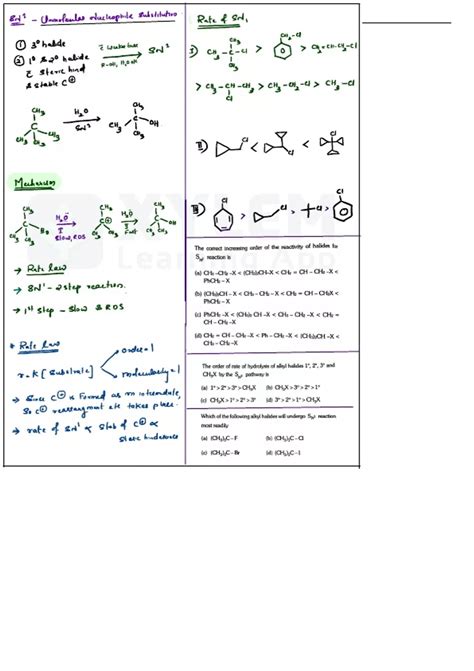 SN¹ - Unimolecular Nucleophilic Substitution
① 3° halide
② 1° & 2° halide
c̄ Steric hind
& stable C⊕
SN¹
CH₃
CH₃ CH₃
H₂O
SN¹
CH₃
CH₃
OH
CH₃
Mechanism
CH₃
CH₃ CH₃ Br
H₂O
I
Slow, RDS
CH₃
CH₃ CH₃
H₂O
II
Fast
CH₃
CH₃ CH₃ OH
→ Rate law
→ SN¹ - 2 step reaction.
→ 1st step - Slow & RDS
* Rate law
order = 1
r = K [Substrate]
molecularity = 1
→ Since C⊕ is formed as an intermediate,
So C⊕ rearrangment etc takes place.
→ rate of SN¹ ∝ Stab of C⊕ ∝
Rate of SN₁
I)
CH₃
CH₃ - C - Cl >
CH₃
CH₂-Cl
> CH₂=CH-CH₂-Cl
> CH₃-CH-CH₃ > CH₃-CH₂-Cl > CH₃-Cl
Cl
II)
Cl < Cl < Cl
III)
Cl
> Cl > Cl >
Cl
XYLEM
Learning App
The correct increasing order of the reactivity of halides for
SN¹ reaction is
(a) CH₃-CH₂-X < (CH₃)₂CH-X < CH₂ = CH - CH₂-X <
PhCH₂-X
(b) (CH₃)₂CH-X < CH₃-CH₂-X < CH₂ = CH-CH₂X <
PhCH₂-X
(c) PhCH₂-X < (CH₃)₂CH-X < CH₃-CH₂-X < CH₂ =
CH-CH₂-X
(d) CH₂ = CH-CH₂-X < Ph-CH₂-X < (CH₃)₂CH-X <
CH₃-CH₂-X
The order of rate of hydrolysis of alkyl halides 1°, 2°, 3° and
CH₃X by the SN¹ pathway is
(a) 1° > 2° > 3° > CH₃X (b) CH₃X > 3° > 2° > 1°
(c) CH₃X > 1° > 2° > 3° (d) 3° > 2° > 1° > CH₃X
Which of the following alkyl halides will undergo SN¹ reaction
most readily
(a) (CH₃)₃C-F (b) (CH₃)₃C-Cl
(c) (CH₃)₃C-Br (d) (CH₃)₃C-I